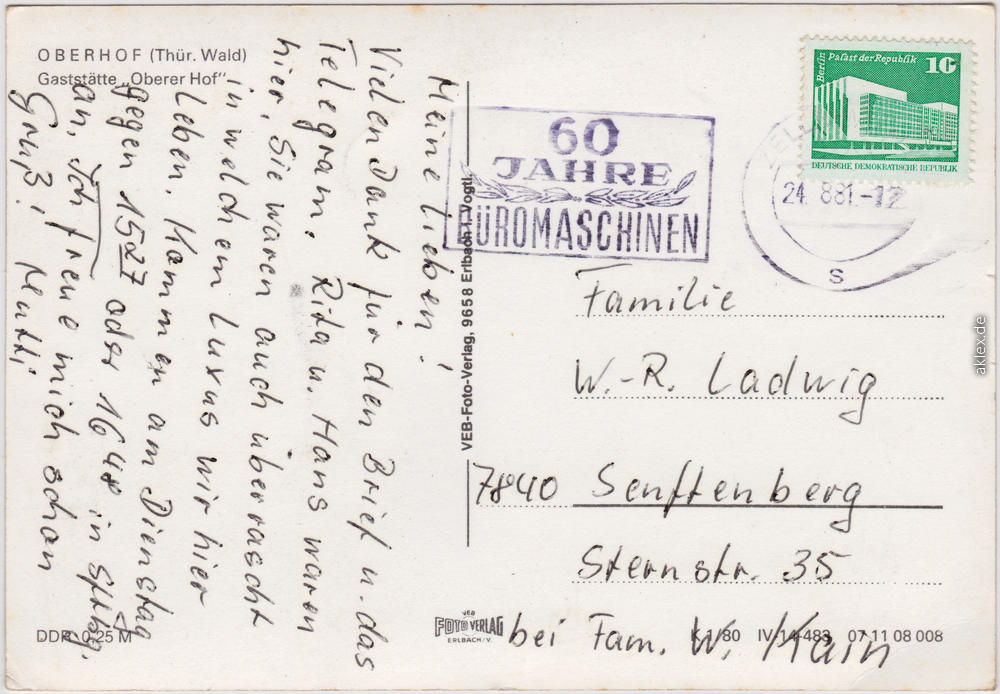 OBERHOF (Thür. Wald)
Gaststätte „Oberer Hof"
Meine Lieben!
Vielen Dank für den Brief u. das
Telegram. Rita u. Hans waren
hier, Sie waren auch überrascht
in welchem Luxus wir hier
Leben. Kommen am Dienstag
gegen 15 27 oder 16 48 in Sftbg.
an, Ich freue mich schon
Gruß! Mutti
DDR 0,25 M
VEB-Foto-Verlag, 9658 Erlbach i. Vogtl.
VEB
FOTO VERLAG
ERLBACH/V.
60
JAHRE
BÜROMASCHINEN
24. 8 81.-12
S
Berlin Palast der Republik 10
DEUTSCHE DEMOKRATISCHE REPUBLIK
Familie
W.-R. Ladwig
7840 Senftenberg
Sternstr. 35
bei Fam. W. Kain
K 1/80 IV-14-483 07 11 08 008
aklex.de